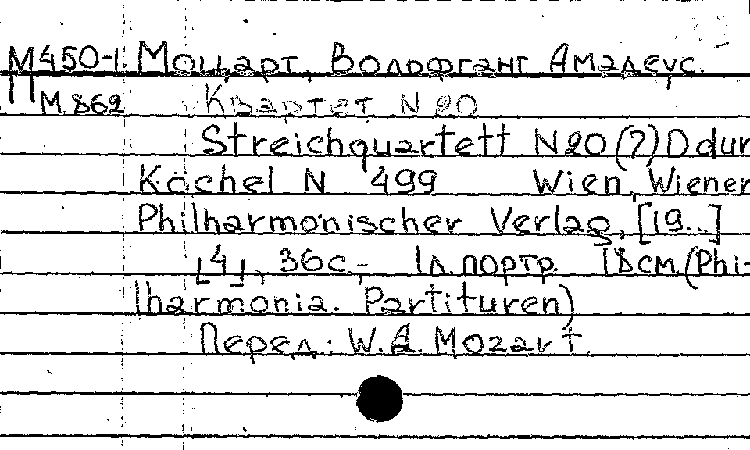 М450-1. Моцарт, Вольфганг Амадеус.
М 862 Квартет N 20
Streichquartett N20(?) D dur
Köchel N 499 Wien, Wiener
Philharmonischer Verlag, [19..]
[4], 36с.- 1л. портр. 18см. (Phi-
lharmonia. Partituren)
Перед.: W. A. Mozart.